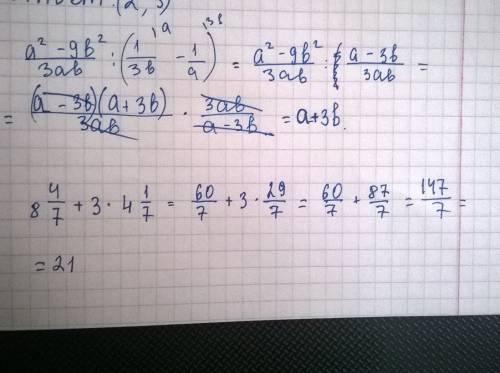 (2, 3)
a² - 9b² / 3ab : (1 / 3b \a - 1 / a \3b) = a² - 9b² / 3ab : a - 3b / 3ab =
= (a - 3b)(a + 3b) / 3ab · 3ab / a - 3b = a + 3b.
8 4/7 + 3 · 4 1/7 = 60/7 + 3 · 29/7 = 60/7 + 87/7 = 147/7 =
= 21